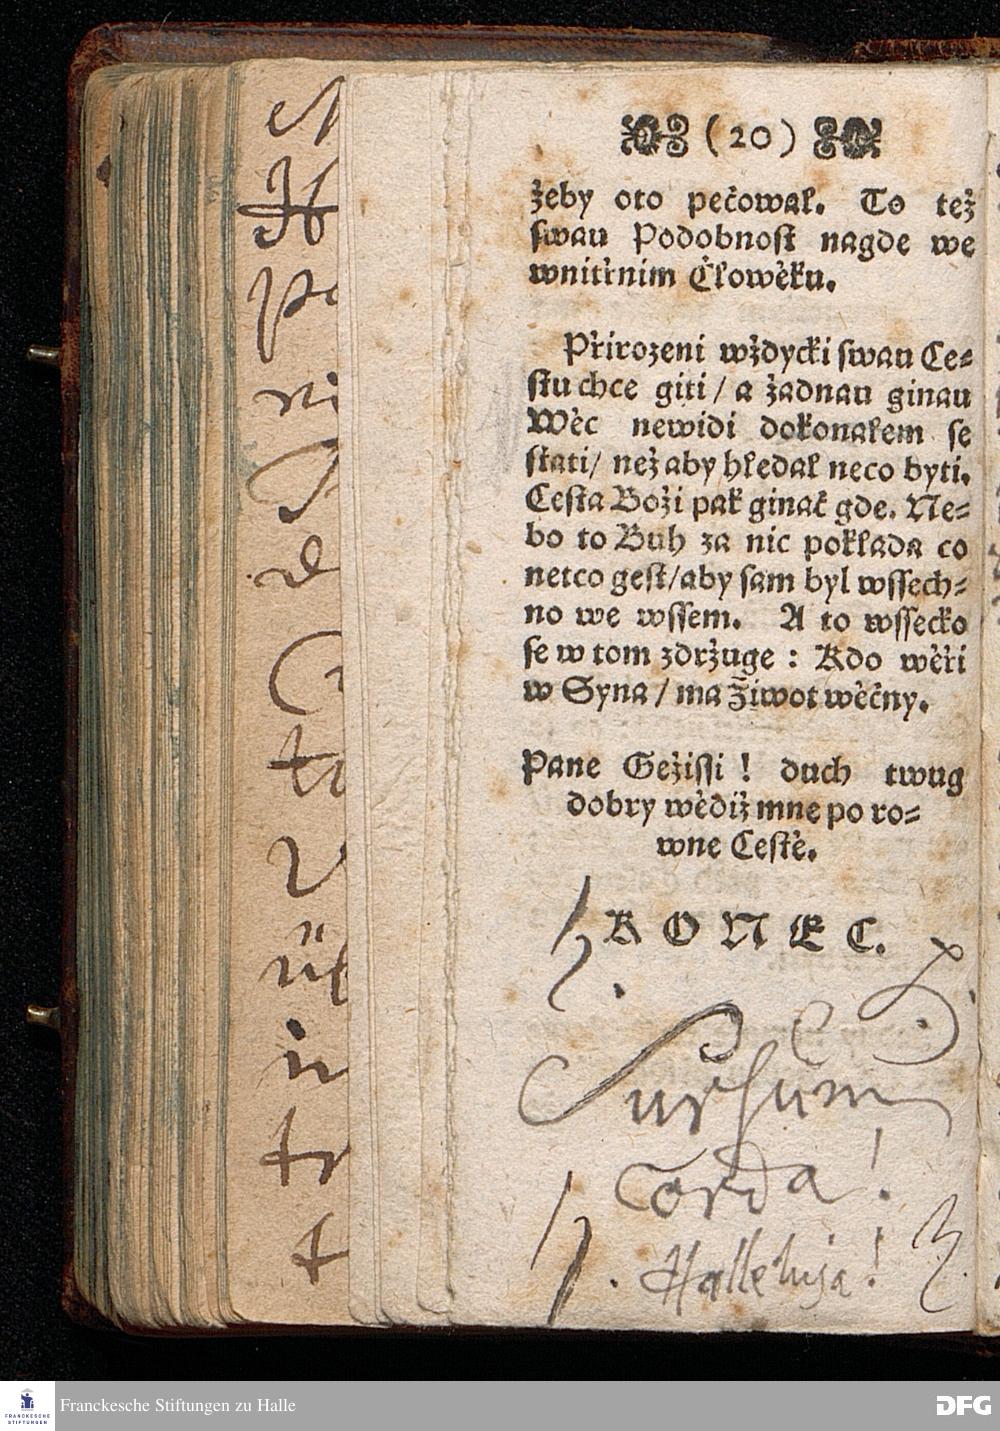 (20)
žeby oto pečowal. To tež
swau Podobnost nagde we
wnitřnim Člowěku.
Přirozeni wždycki swau Ce=
stu chce giti / a žadnau ginau
Wěc newidi dokonalem se
stati / než aby hledal neco byti.
Cesta Boži pak ginač gde. Ne=
bo to Buh za nic pokłada co
netco gest / aby sam byl wssech=
no we wssem. A to wssecko
se w tom zdržuge : Kdo wěři
w Syna / ma Žiwot wěčny.
Pane Gežissi ! duch twug
dobry wědiž mne po ro=
wne Cestě.
KONEC.
Sursum
Corda!
Halleluja!
Franckesche Stiftungen zu Halle
FRANCKESCHE
STIFTUNGEN
DFG